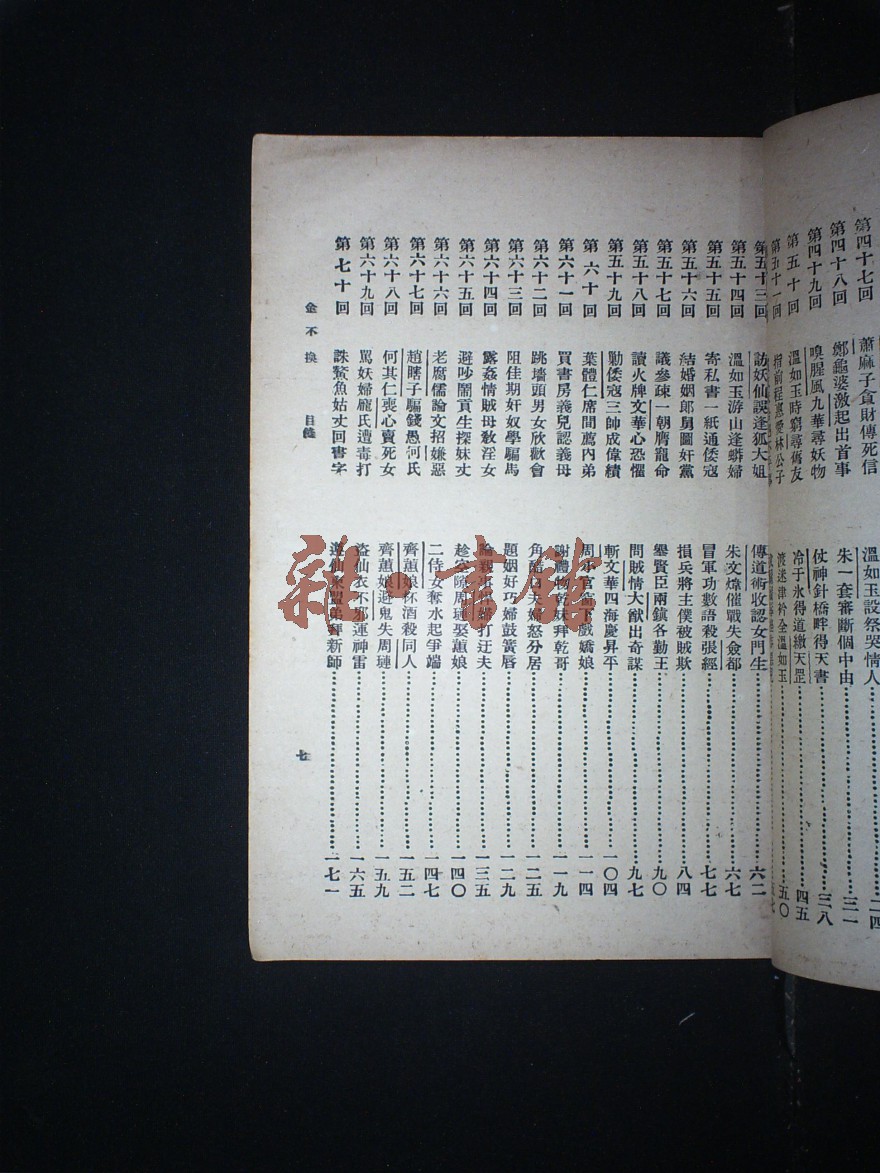 第四十七回 蕭麻子貪財傳死信 溫如玉設祭哭情人 二四
第四十八回 鄭龜婆激起出首事 朱一套審斷個中由 三一
第四十九回 嗅腥風九華尋妖物 仗神針橋畔得天書 三八
第五十回 溫如玉時窮尋舊友 冷于氷得道繳天罡 四五
第五十一回 指前程惠愛林公子 渡迷津矜全溫如玉 五〇
第五十三回 訪妖仙誤逢狐大姐 傳道術收認女門生 六二
第五十四回 溫如玉游山逢蟒婦 朱文煒催戰失僉都 六七
第五十五回 寄私書一紙通倭寇 冒軍功數語殺張經 七七
第五十六回 結婚姻郎舅圖奸黨 損兵將主僕被賊欺 八四
第五十七回 議參疎一朝膺寵命 舉賢臣兩鎮各勤王 九〇
第五十八回 讀火牌文華心恐懼 問賊情大猷出奇謀 九七
第五十九回 勦倭寇三帥成偉績 斬文華四海慶昇平 一〇四
第六十回 葉體仁席間薦內弟 周小官窗下戲嬌娘 一一四
第六十一回 買書房義兒認義母 謝禮物乾妹拜乾哥 一一九
第六十二回 跳墻頭男女欣歡會 角醋口夫婦怒分居 一二五
第六十三回 阻佳期奸奴學騙馬 題姻好巧婦鼓簧唇 一二九
第六十四回 露姦情賊母敎淫女 論親事悍婦打迂夫 一三五
第六十五回 避吵鬧貢生探妹丈 趁空隙周璉娶蕙娘 一四〇
第六十六回 老腐儒論文招嫌惡 二侍女奪水起爭端 一四七
第六十七回 趙瞎子騙錢愚河氏 齊蕙娘杯酒殺同人 一五二
第六十八回 何其仁喪心賣死女 齊蕙娘避鬼失周璉 一五九
第六十九回 罵妖婦龐氏遭毒打 盜仙衣不邪運神雷 一六五
第七十回 誅鰲魚姑丈回書字 遵仙柬盟弟拜新師 一七一
金不換 目錄 七